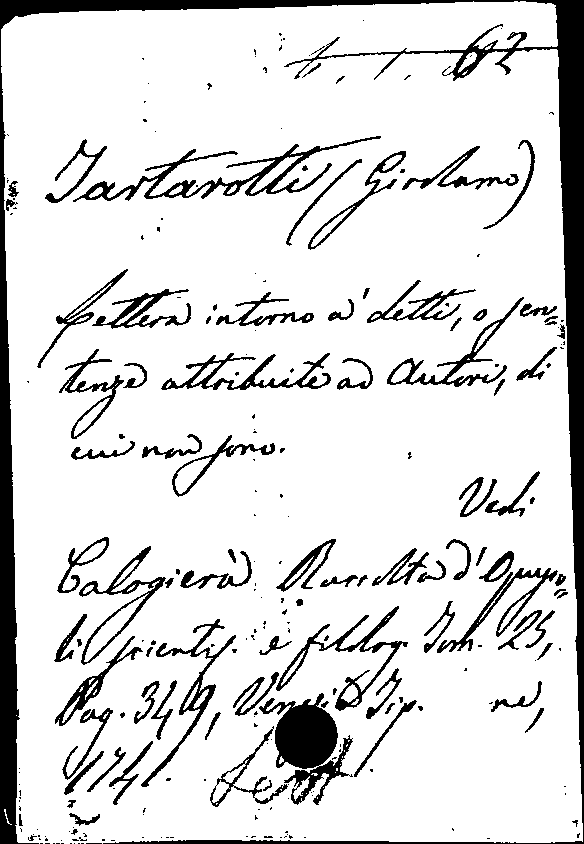 6. 1. 62
Tartarotti (Girolamo)
Lettera intorno a' detti, o sen=
tenze attribuite ad Autori, di
cui non sono.
Vedi
Calogierà Raccolta d'Opusco=
li scientif. e filolog. Tom. 25,
Pag. 349, Venezia Tip. ne,
1741.